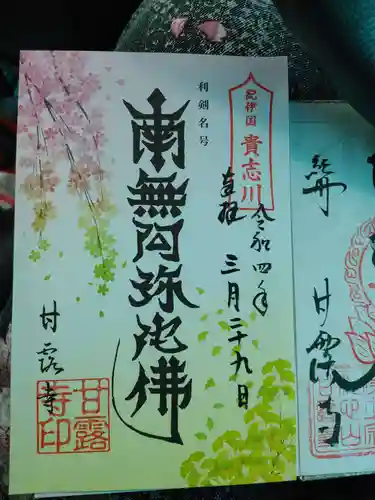 紀伊国
貴志川
奉拝
令和四年
三月二十九日
利剣名号
南無阿弥陀佛
甘露寺
甘露
寺印